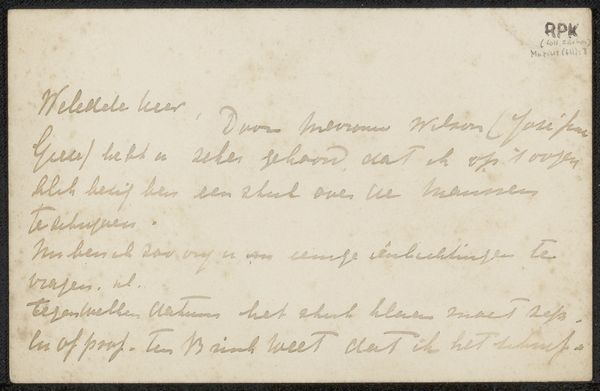 RPK
Weledele heer,
Door Mevrouw Wilson (Josefine
Giese) hebt u zeker gehoord, dat ik op 't oogen
blik bezig ben een stuk over de Mannen
te schrijven.
Nu ben ik zoo vrij u om eenige inlichtingen te
vragen. nl.
tegen welken datum het stuk klaar moet zijn.
En of prof. ten Brink weet dat ik het schrijf.